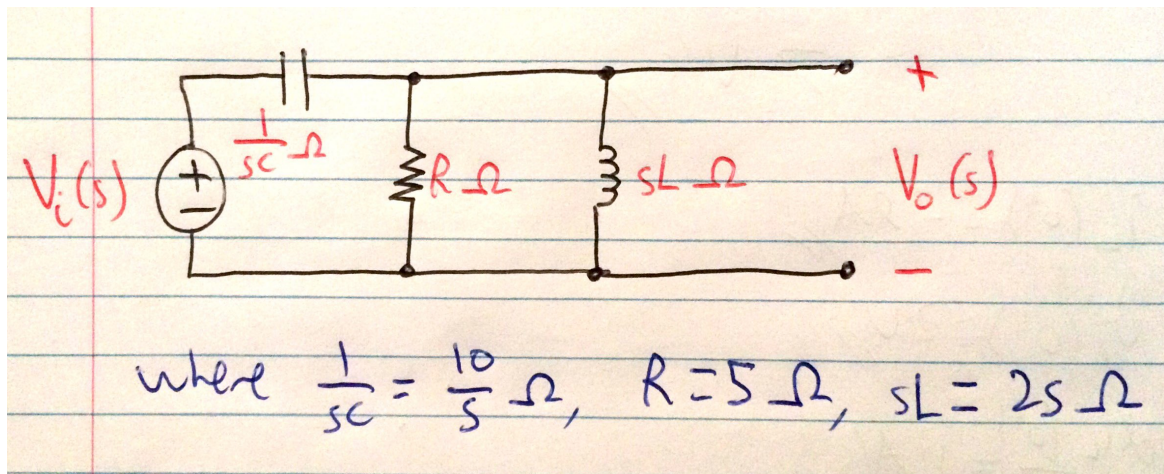 +
1/sC Ω
V_i(s)
+
−
R Ω
sL Ω
V_o(s)
−
where 1/sC = 10/s Ω, R = 5 Ω, sL = 2s Ω